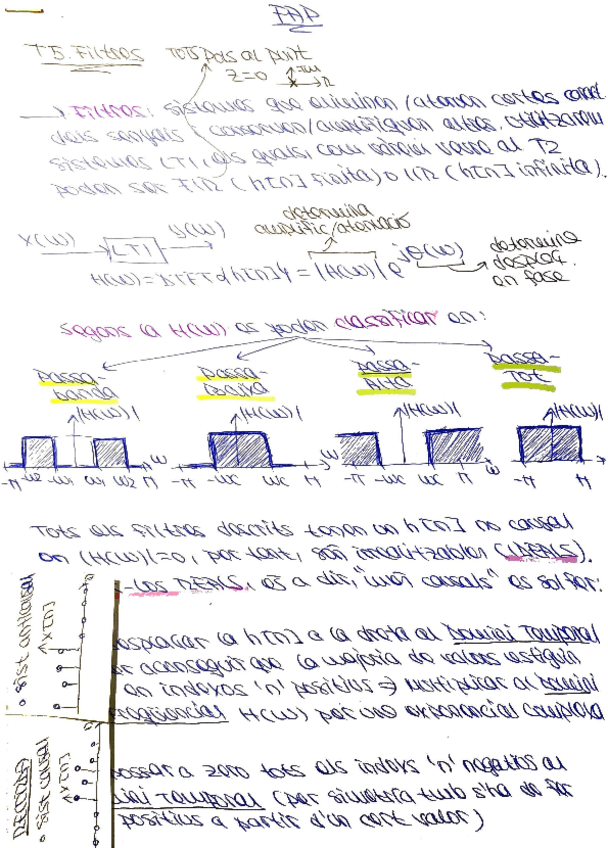 PAP
T5. Filtros Tots pols al punt
z=0
Im
R
→ Filtros: sistemes que eliminen/atenen certes
dels senyals i conserven/amplifiquen altres. Utilitzarem
sistemes LTI, els quals, com vàrem veure al T2
poden ser FIR (h[n] finita) o IIR (h[n] infinita).
determina
amplific/atenuació
X(w) LTI y(w)
H(w) = DTFT{h[n]} = |H(w)| e^jθ(w)
determina
desplaç.
en fase
Segons la H(w) es poden classificar en:
Passa-banda
Passa-Baixa
Passa-Alta
Passa-Tot
|H(w)| |H(w)| |H(w)| |H(w)|
-π -w2 -w1 w1 w2 π w
-π -wc wc π w
-π -wc wc π w
-π π
Tots els filtres descrits tenen un h[n] no causal
on |H(w)|=0, per tant, són irrealitzables (IDEALS).
-Los REALS, és a dir, "més causals" es sol fer:
• Sist anticausal
x[n]
Desplaçar la h[n] a la dreta al Domini Temporal
per aconseguir que la majoria de valors estiguin
en indexos 'n' positius ⇒ Multiplicar al Domini
freqüencial H(w) per una exponencial complexa
RECTIFA
• Sist causal
x[n]
possar a zero tots els indexs 'n' negatius al
Domini Temporal (per simetria tmb s'ha de fer
positius a partir d'un cert valor)